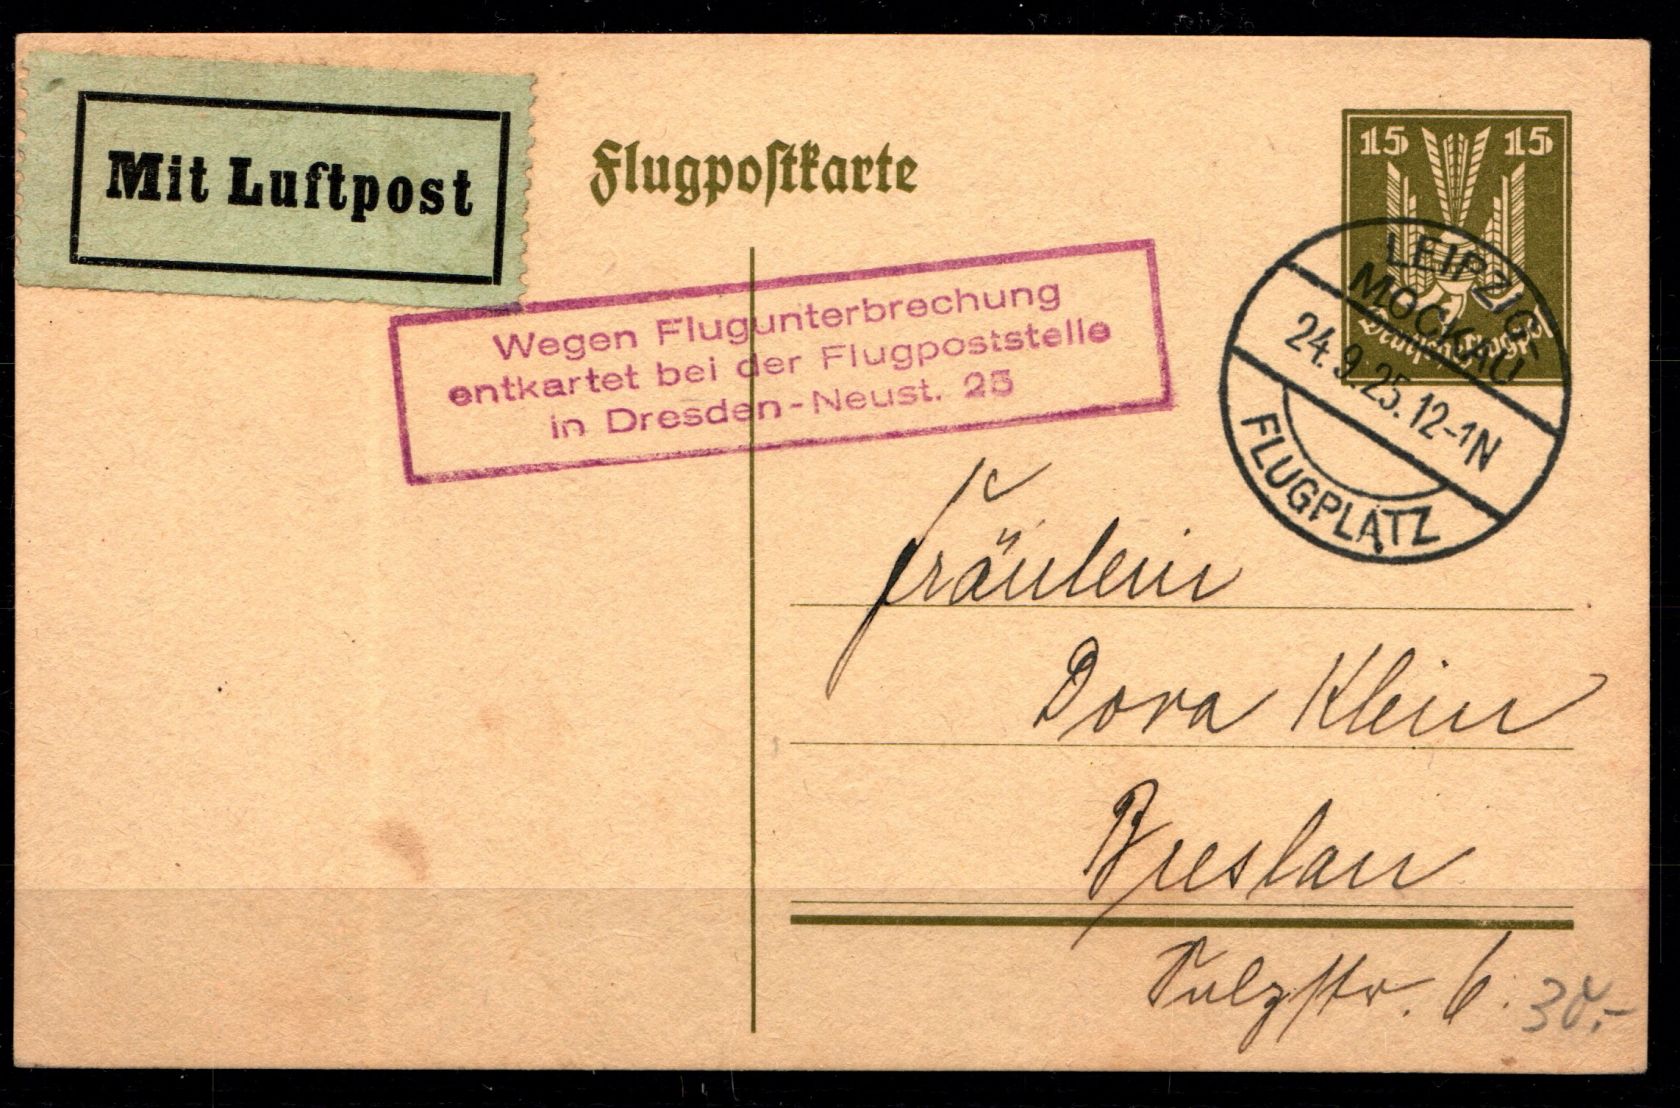 Mit Luftpost
Flugpostkarte
15 15
Deutsche Flugpost
LEIPZIG-
MOCKAU
24.9.25.12-1N
FLUGPLATZ
Wegen Flugunterbrechung
entkartet bei der Flugpoststelle
in Dresden-Neust. 25
Fräulein
Dora Klein
Breslau
Sulzstr. 6.
30.-